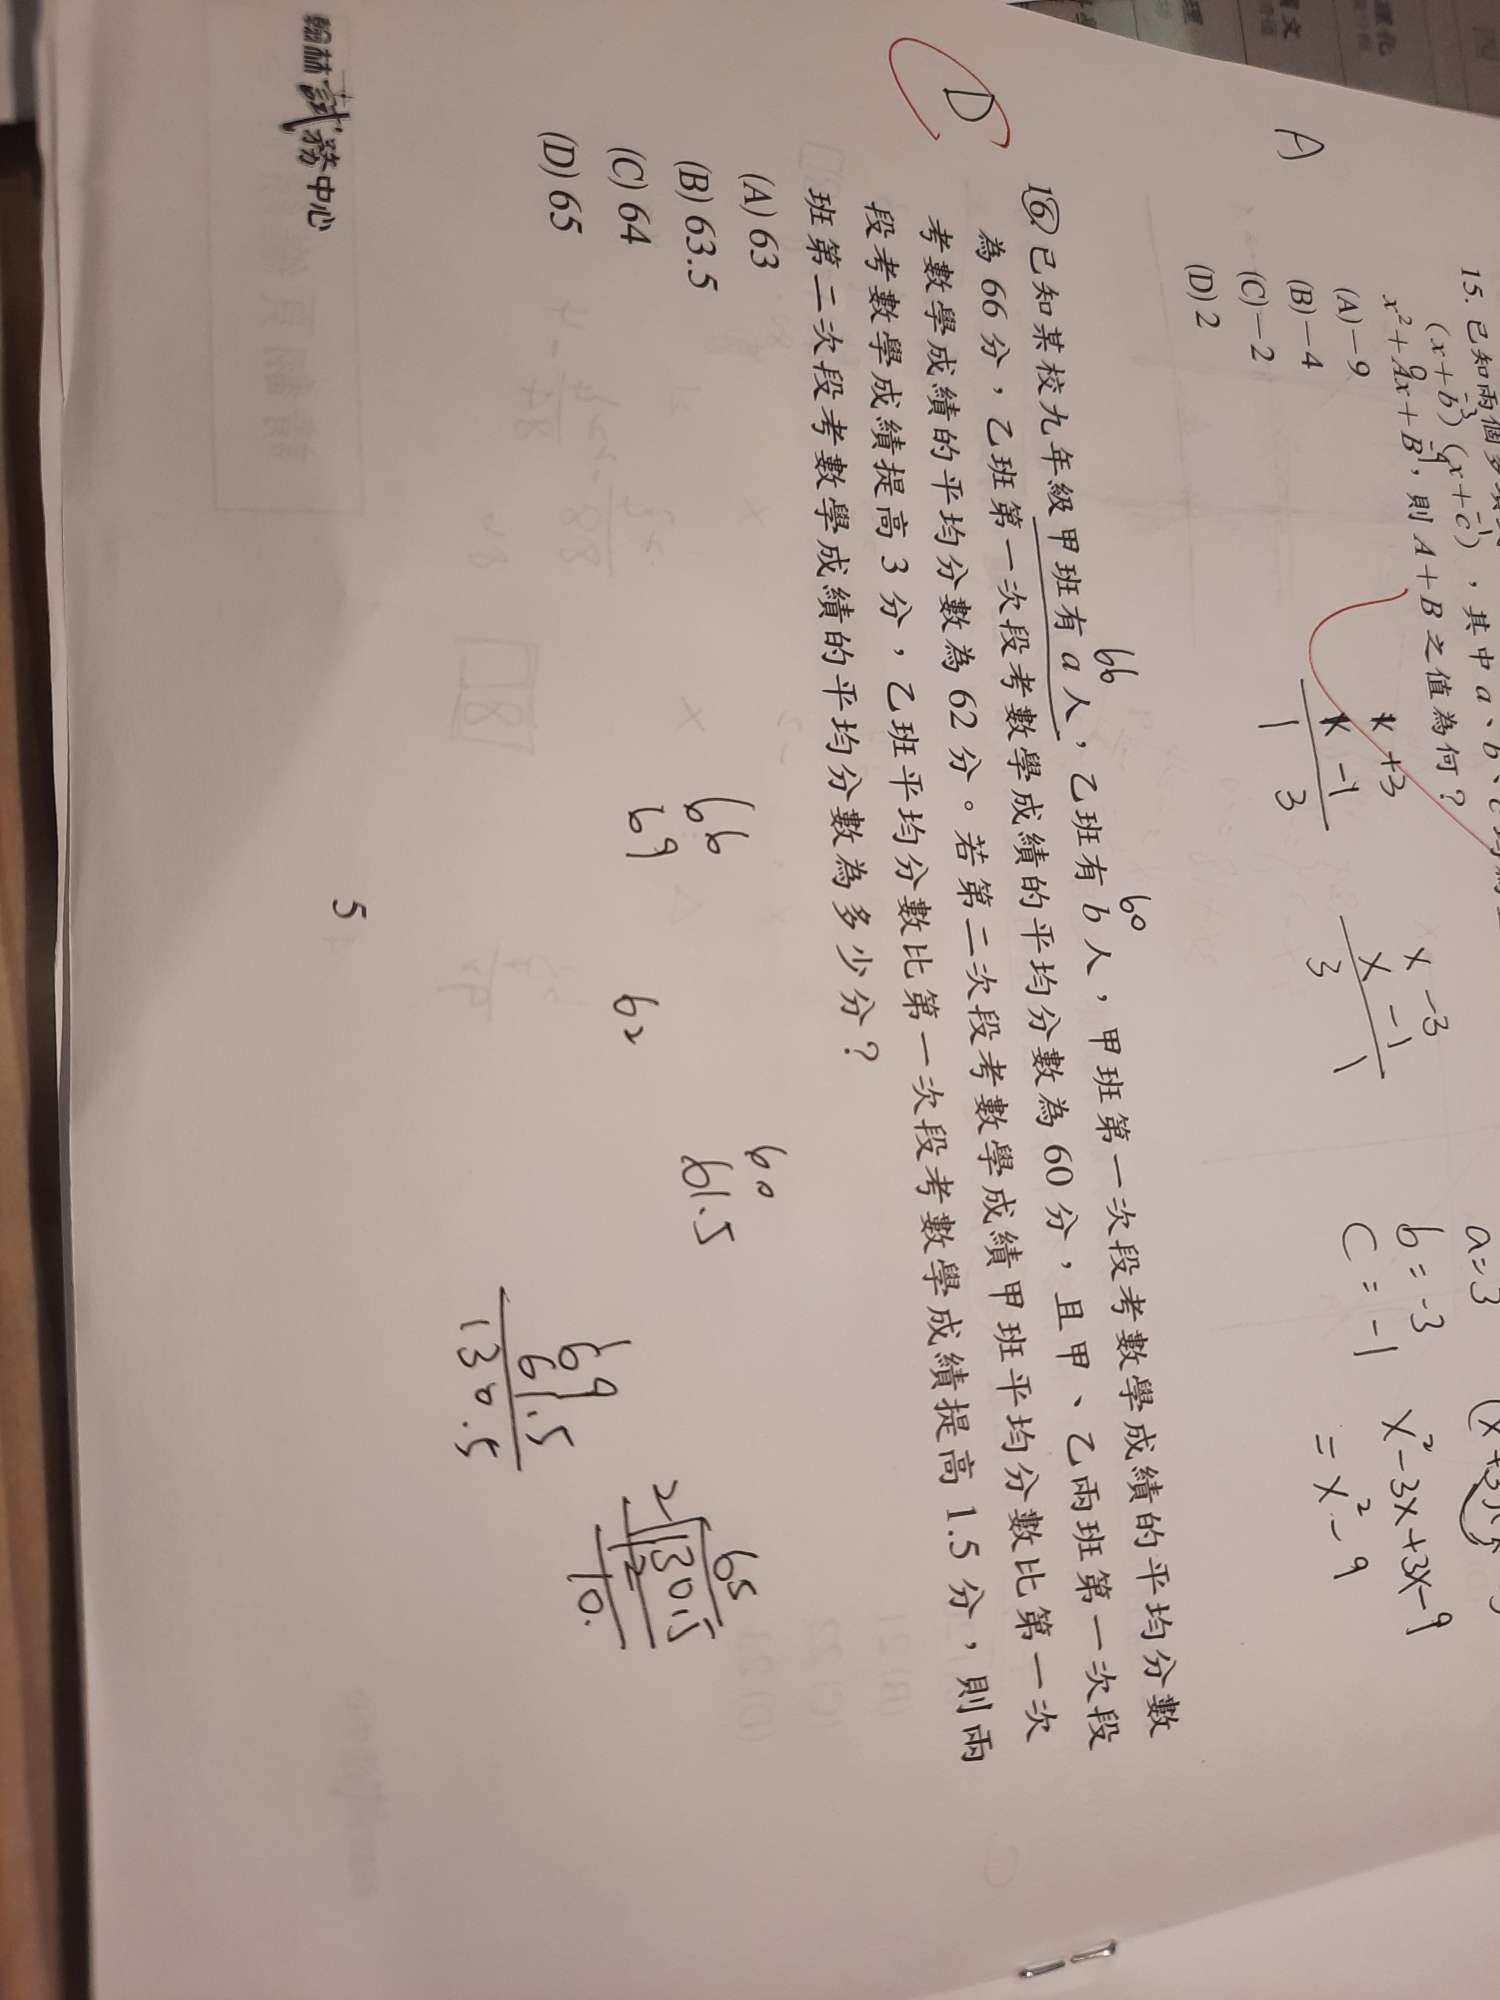 15. 已知兩個多
(x+b)(x+c),其中a、b、c均為
x²+Ax+B,則A+B之值為何?
(A)-9
(B)-4
(C)-2
(D)2
A
x +3
x -1
1 3
x -3
x -1
3 1
a=3
b=-3
c=-1
x²-3x+3x-9
=x²-9
D
16. 已知某校九年級甲班有a人,乙班有b人,甲班第一次段考數學成績的平均分數
為66分,乙班第一次段考數學成績的平均分數為60分,且甲、乙兩班第一次段
考數學成績的平均分數為62分。若第二次段考數學成績甲班平均分數比第一次
段考數學成績提高3分,乙班平均分數比第一次段考數學成績提高1.5分,則兩
班第二次段考數學成績的平均分數為多少分?
66
60
(A)63
(B)63.5
(C)64
(D)65
66
69
62
60
61.5
69
61.5
130.5
65
2 130.5
12
10.
5
翰林試務中心